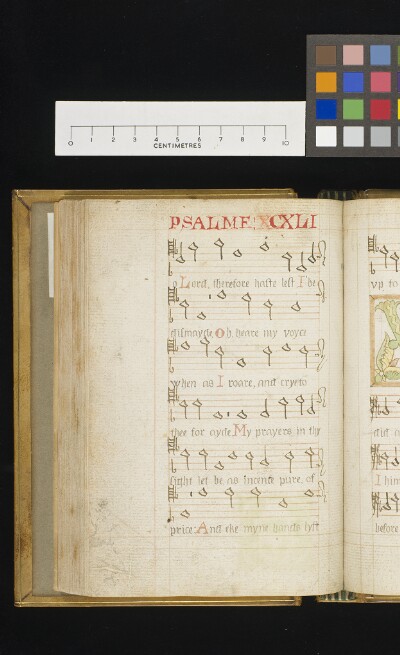 0 1 2 3 4 5 6 7 8 9 10
CENTIMETRES
PSALME: XCXLI
o Lord, therefore haste lest I be
dismayde, Oh, heare my voyce
when as I roare, and cryeto
thee for ayde. My prayers in thy
sight let be as incense pure, of
price: And eke myne hands lyft
vp to
I him
before